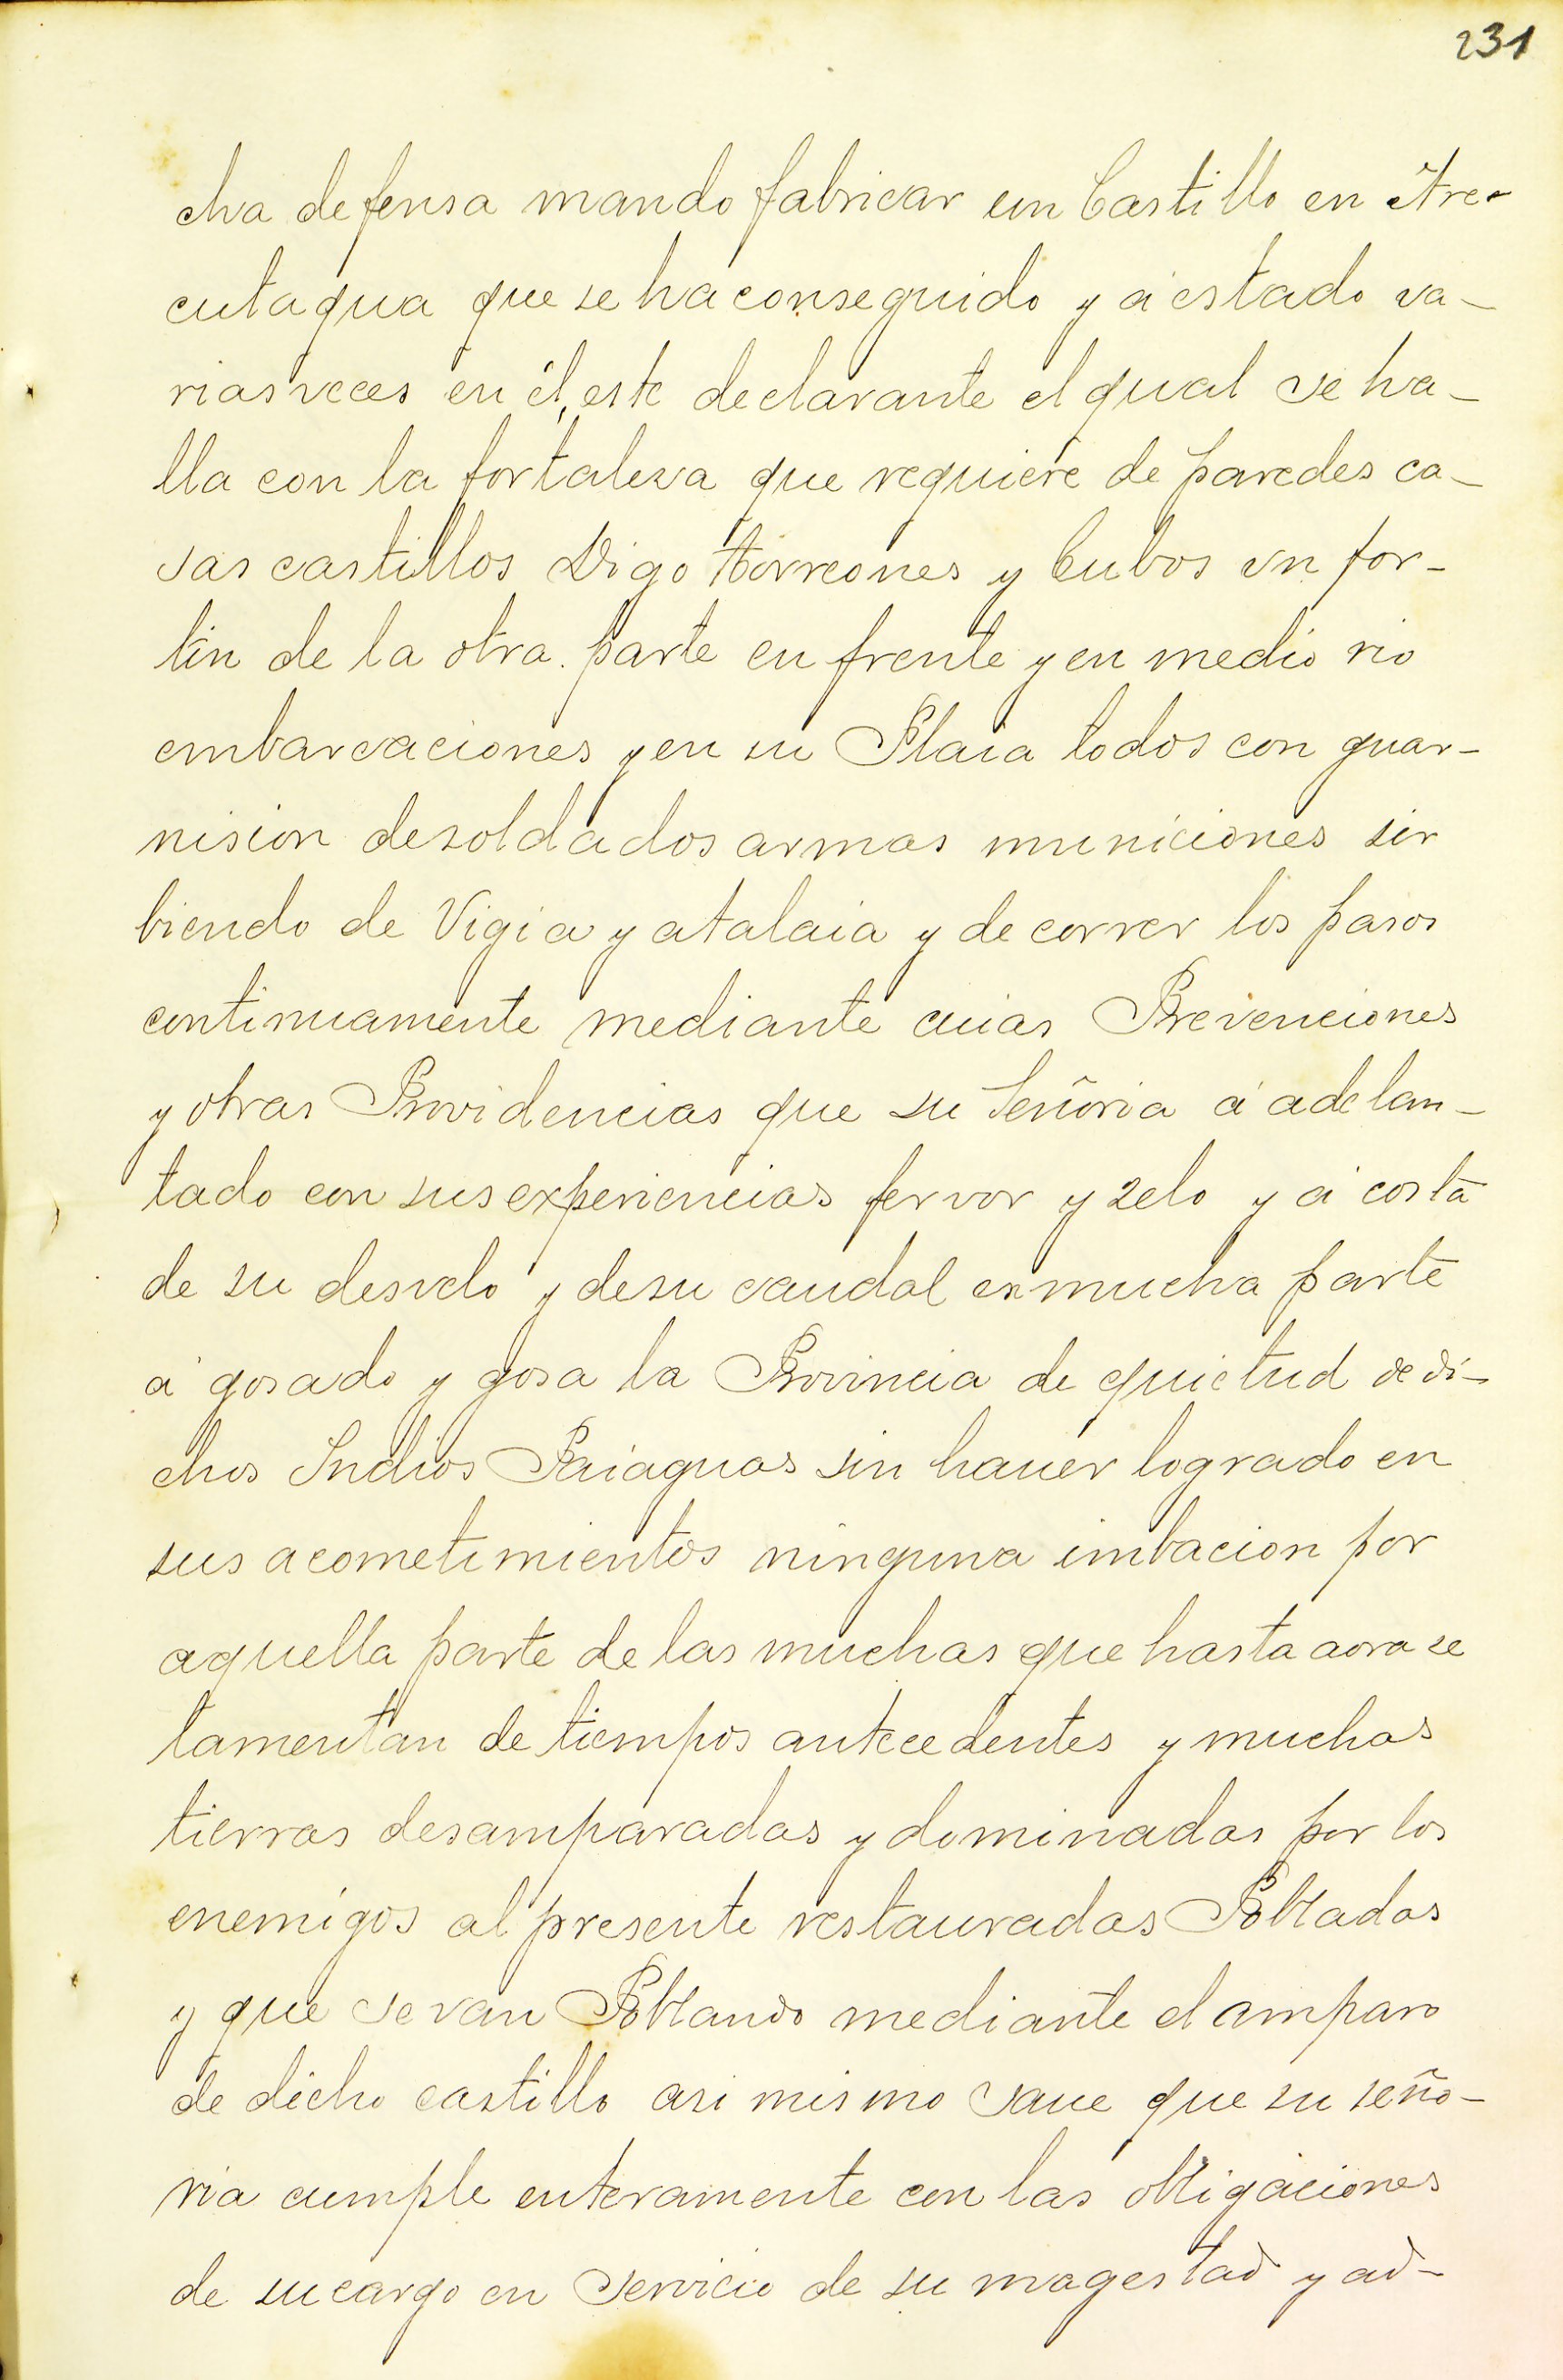 231
cha defensa mando fabricar un Castillo en Are-
cutaqua que se ha conseguido y á estado va-
rias veces en él, este declarante el qual se ha-
lla con la fortalesa que requiere de paredes ca-
sas castillos Digo torreones y Cubos un for-
tin de la otra parte en frente y en medio rio
embarcaciones y en su Plaia todos con guar-
nision de soldados armas municiones sir
biendo de Vigia y atalaia y de correr los pasos
continuamente mediante cuias Prevenciones
y otras Providencias que su Señoria á adelan-
tado con sus experiencias fervor y zelo y á costa
de su desvelo y de su caudal en mucha parte
á gosado y gosa la Provincia de quietud de di-
chos Indios Paiaguas sin hauer logrado en
sus acometimientos ninguna imbacion por
aquella parte de las muchas que hasta aora se
lamentan de tiempos antecedentes y muchas
tierras desamparadas y dominadas por los
enemigos al presente restauradas Pobladas
y que se van Poblando mediante el amparo
de dicho castillo asi mismo saue que su seño-
ria cumple enteramente con las obligaciones
de su cargo en servicio de su magestad y ad-